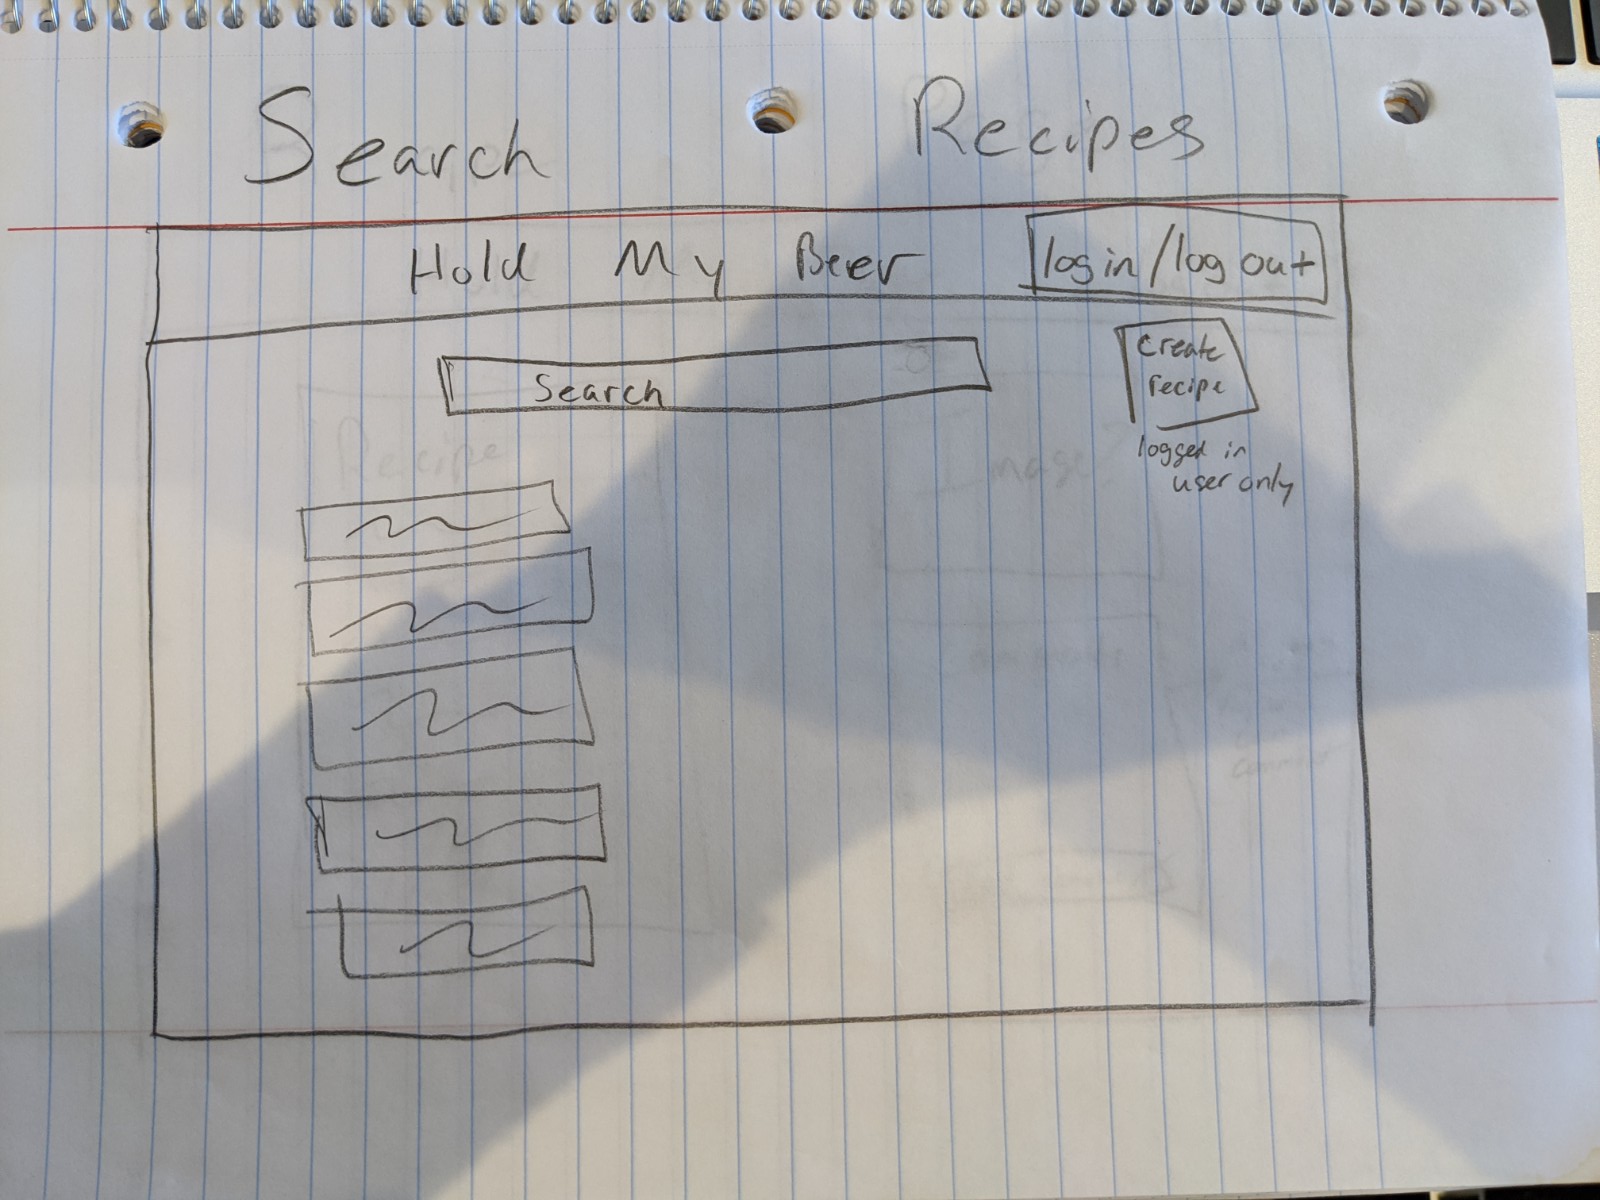 Search Recipes
Hold My Beer
log in/log out
Search
create
recipe
logged in
user only
Recipe
Image?